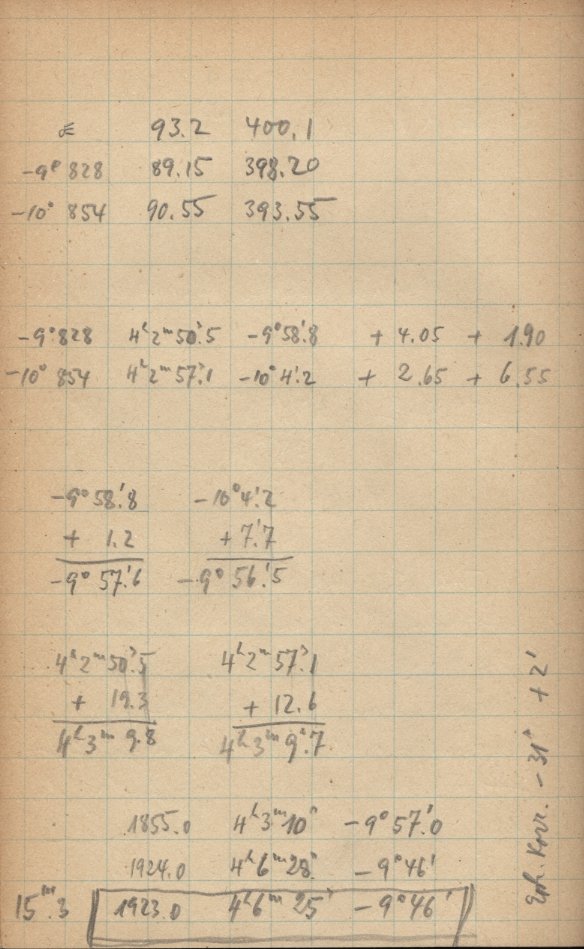 93.2 400.1
-9° 828 89.15 398.20
-10° 854 90.55 393.55
-9°828 4ʰ2ᵐ50ˢ.5 -9°58'.8 + 4.05 + 1.90
-10° 854 4ʰ2ᵐ57ˢ.1 -10°4'.2 + 2.65 + 6.55
-9°58'.8 -10°4'.2
+ 1.2 +7'.7
-9°57'.6 -9°56'.5
4ʰ2ᵐ50ˢ.5 4ʰ2ᵐ57ˢ.1
+ 19.3 + 12.6
4ʰ3ᵐ9.8 4ʰ3ᵐ9ˢ.7
1855.0 4ʰ3ᵐ10ˢ -9°57'.0
1924.0 4ʰ6ᵐ28ˢ -9°46'
15ᵐ.3 1923.0 4ʰ6ᵐ25ˢ -9°46'
Eph. Korr. -31ˢ +2'